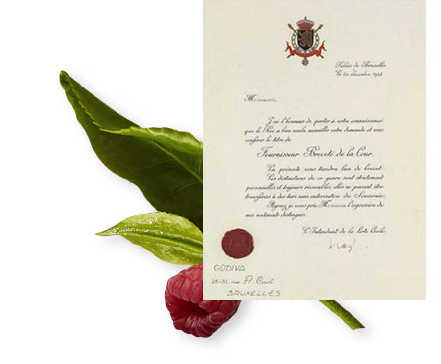 Palais de Bruxelles
Monsieur,
J'ai l'honneur de porter à votre connaissance
que le Roi a bien voulu accueillir votre demande et vous
conférer le titre de
Fournisseur Breveté de la Cour.
La présente vous tiendra lieu de brevet.
Les distinctions de ce genre sont strictement
personnelles et toujours révocables, elles ne peuvent être
transférées à des tiers sans autorisation du Souverain.
Agréez, je vous prie, Monsieur, l'expression de
mes sentiments distingués.
L'Intendant de la Liste Civile.
GODIVA
BRUXELLES